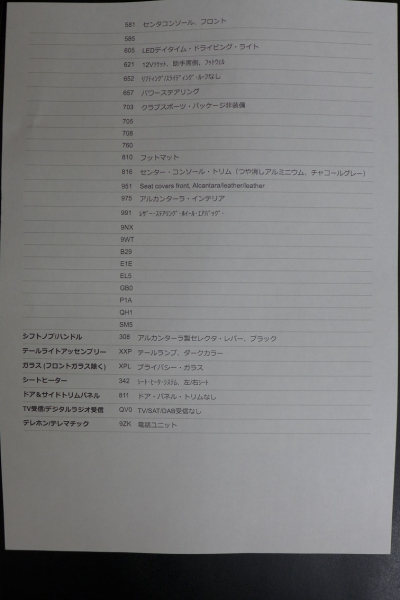 581 センタコンソール、フロント
585
605 LEDデイタイム・ドライビング・ライト
621 12Vソケット、助手席側、フットウェル
652 リフティング/スライディング・ルーフなし
657 パワーステアリング
703 クラブスポーツ・パッケージ非装備
705
708
760
810 フットマット
816 センター・コンソール・トリム（つや消しアルミニウム、チャコールグレー）
951 Seat covers front, Alcantara/leather/leather
975 アルカンターラ・インテリア
991 レザー・ステアリング・ホイール・エアバッグ・
9NX
9WT
B29
E1E
EL5
GB0
P1A
QH1
SM5
シフトノブ/ハンドル 308 アルカンターラ製セレクタ・レバー、ブラック
テールライトアッセンブリー XXP テールランプ、ダークカラー
ガラス (フロントガラス除く) XPL プライバシー・ガラス
シートヒーター 342 シート・ヒータ・システム、左/右シート
ドア＆サイドトリムパネル 611 ドア・パネル・トリムなし
TV受信/デジタルラジオ受信 QV0 TV/SAT/DAB受信なし
テレホン/テレマチック 9ZK 電話ユニット